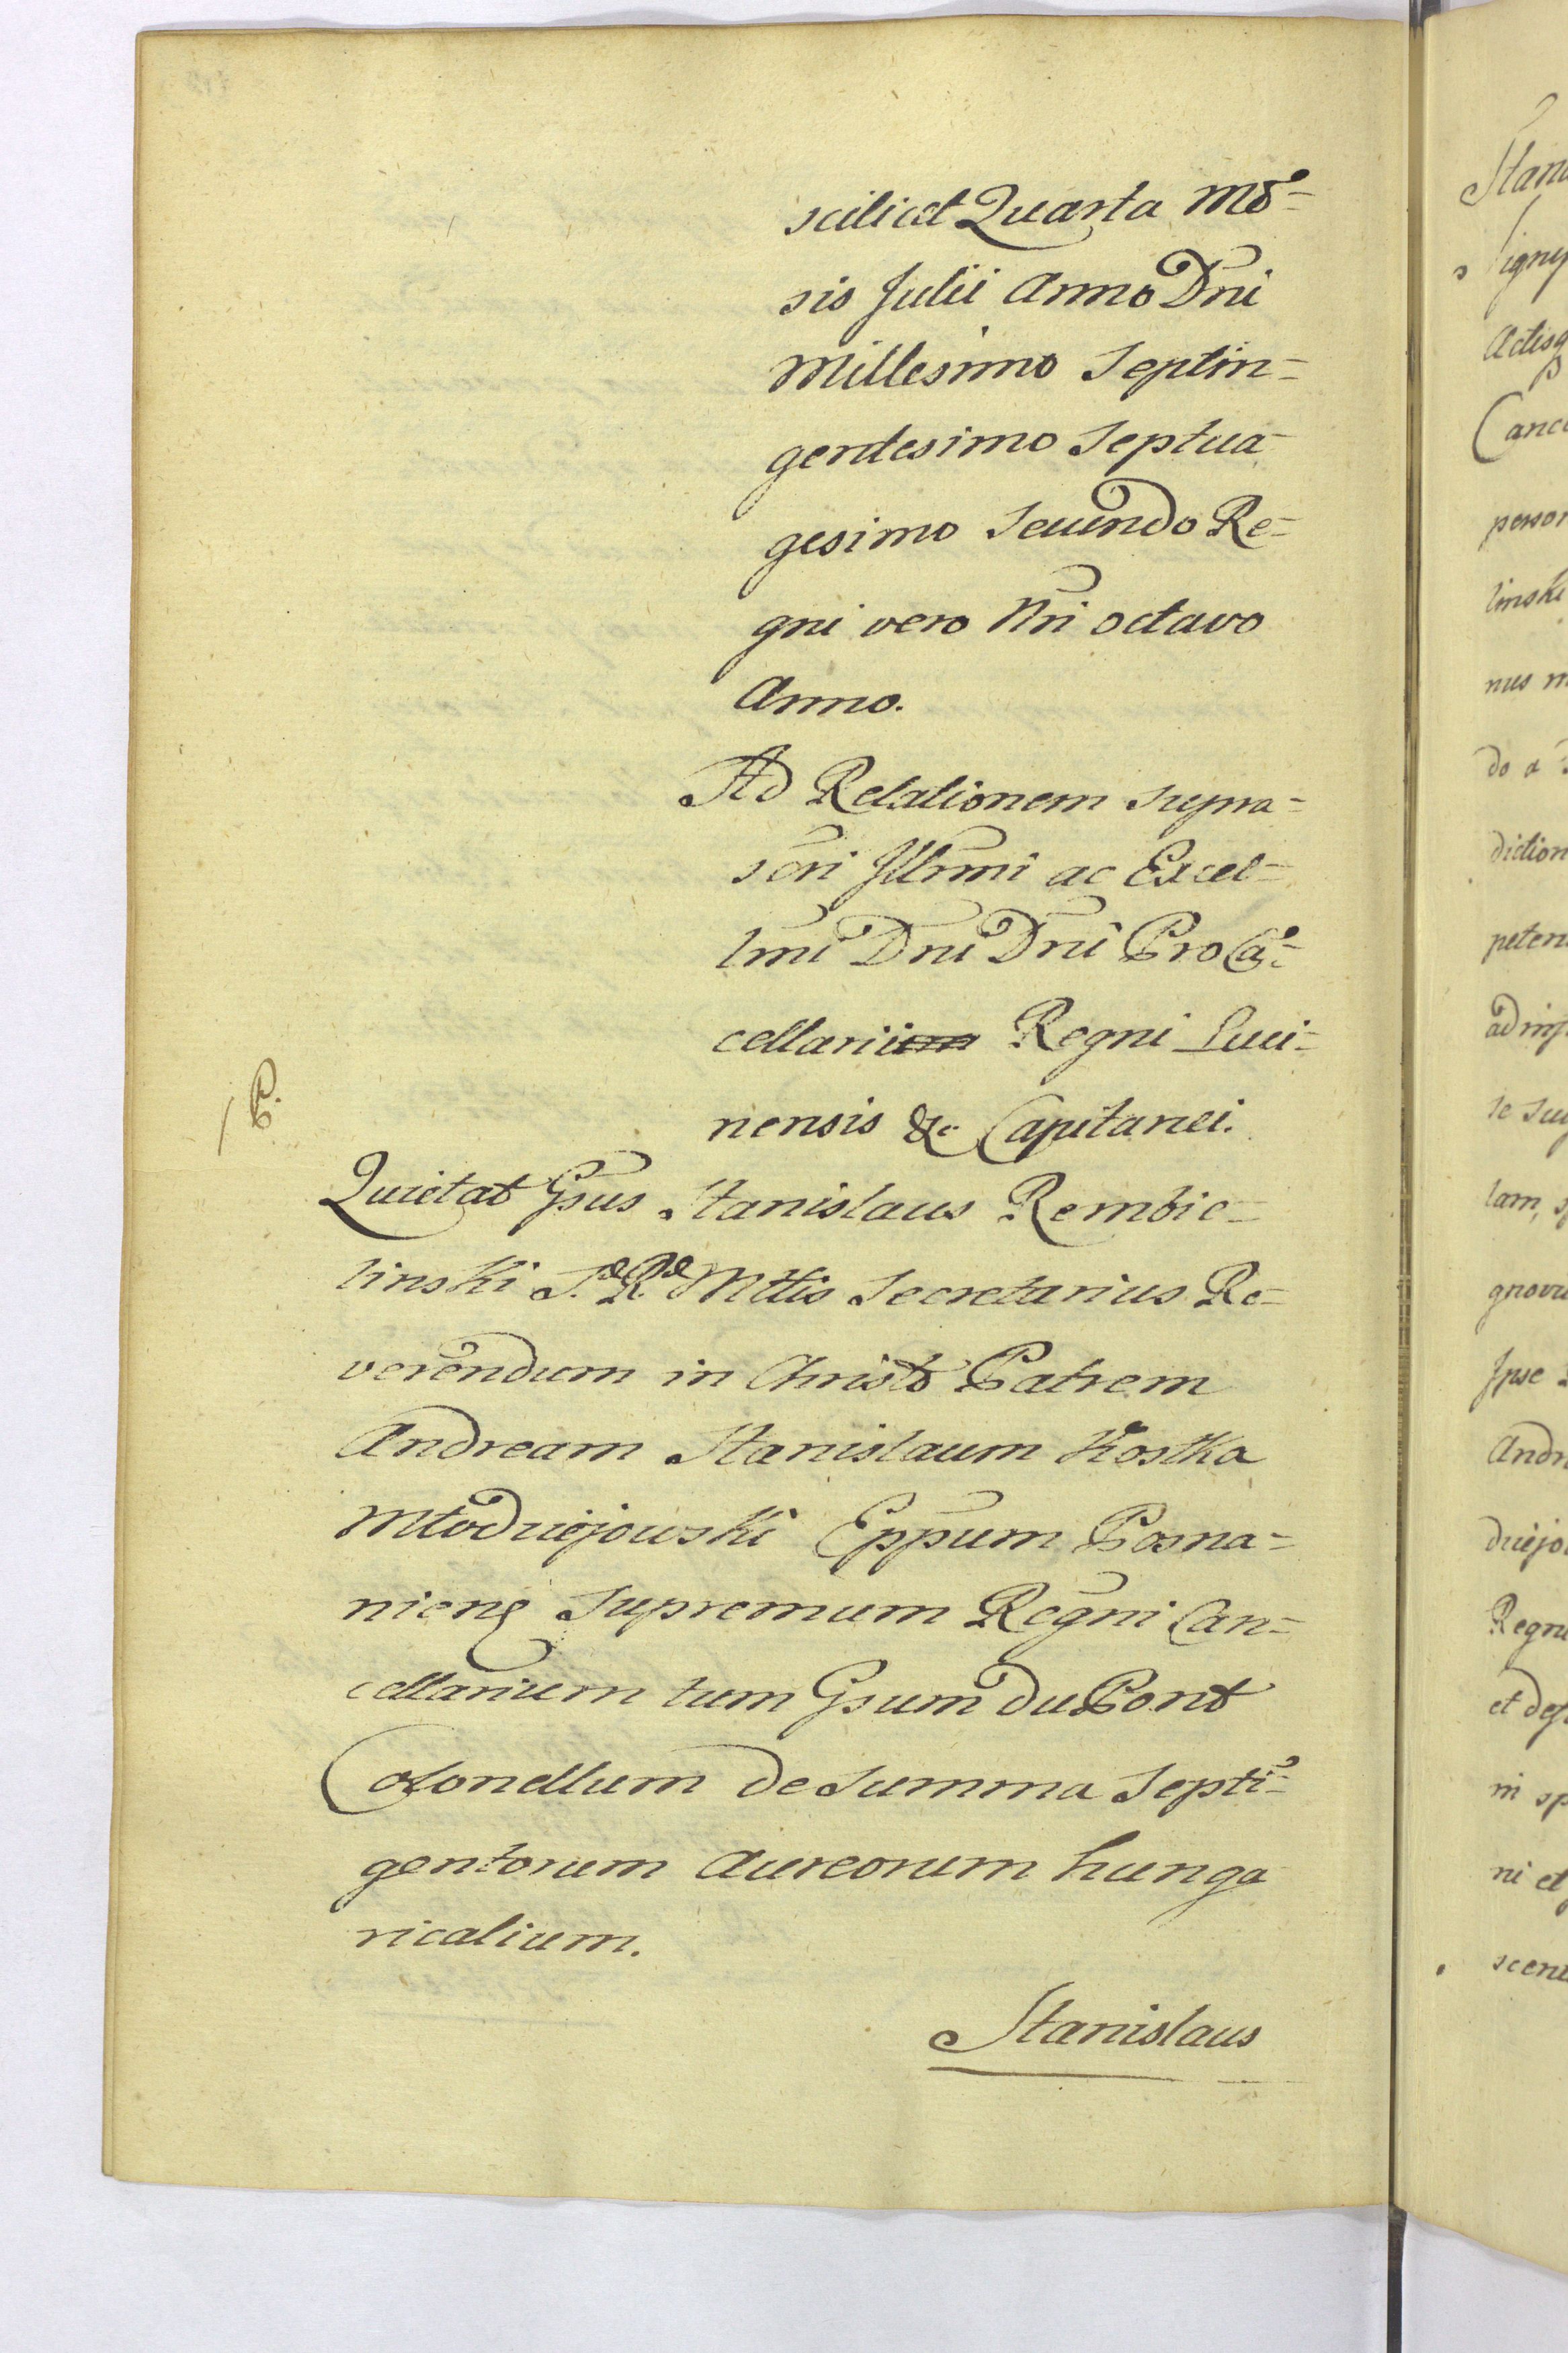 scilicet Quarta Mẽ=
sis Julii Anno Dñi
Millesimo Septin=
gentesimo Septua
gesimo Secundo Re=
gni vero Nri octavo
Anno.
Ad Relationem supra=
scri Illrmi ac Excel=
lmi Dni Dni ProCa=
cellarii Regni Luci=
nensis &c Capitanei.
P.
Quietat Gsus Stanislaus Rembie=
linski S.æ R.æ Mttis Secretarius Re=
verendum in Christo Patrem
Andream Stanislaum Kostka
Młodziejowski Eppum Posna=
niens Supremum Regni Can=
cellarium tum Gsum du Pont
Colonellum de Summa Septi=
gentorum Aureorum hunga
ricalium.
Stanislaus
Stani
igny
Actisq
Canc
person
linski
nus m
do a
diction
peten
ad
se su
lam,
gnovi
Ipse
Andr
dziejo
Regni
et de
in sp
ni et
scen